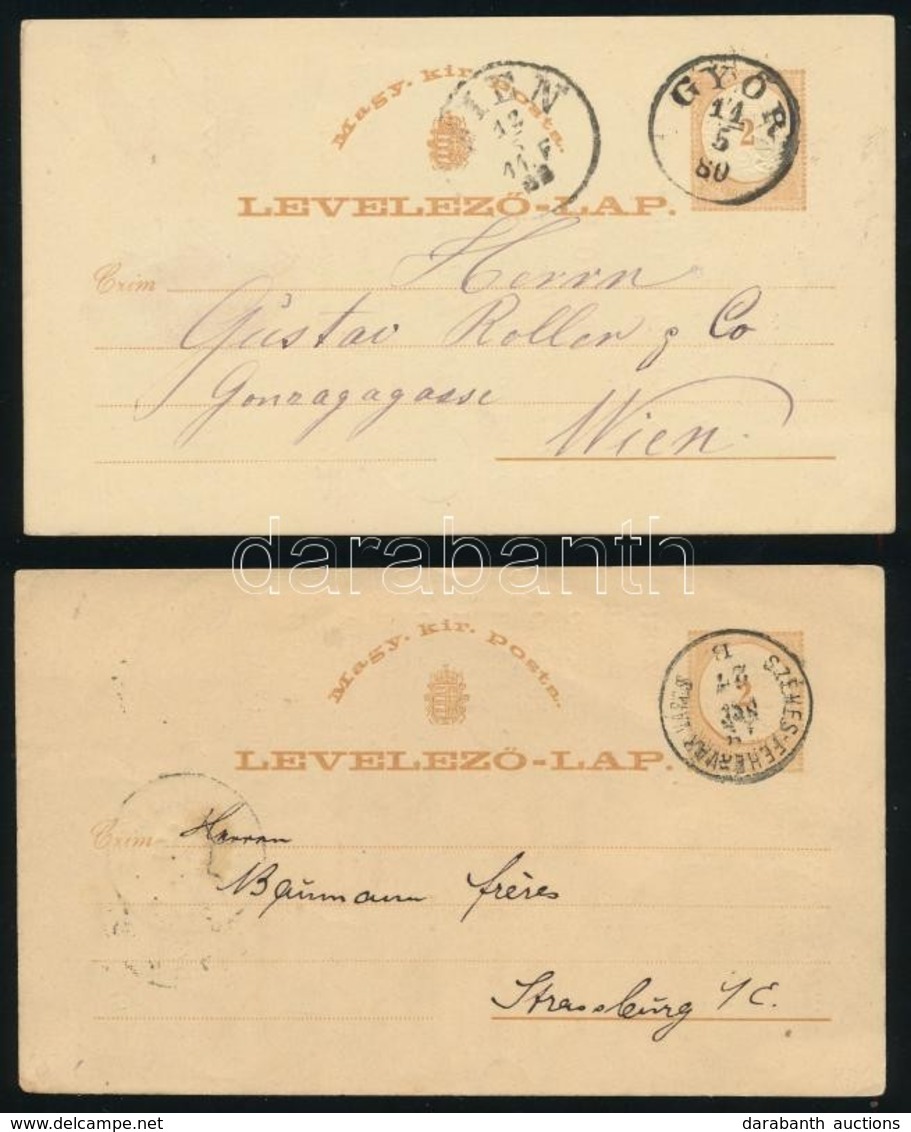 Magy. kir. Posta.
IEN
12
11 F
GYŐR
11
5
80
2
LEVELEZŐ-LAP.
Herrn
Czim
Gustav Roller & Co
Gonzagagasse
Wien.
darabanth
Magy. kir. Posta.
B
SZÉKES-FEHÉRVÁR
2
LEVELEZŐ-LAP.
Czim
Herren
Baumann frères
Strassburg i/E.
www.delcampe.net
darabanth auctions